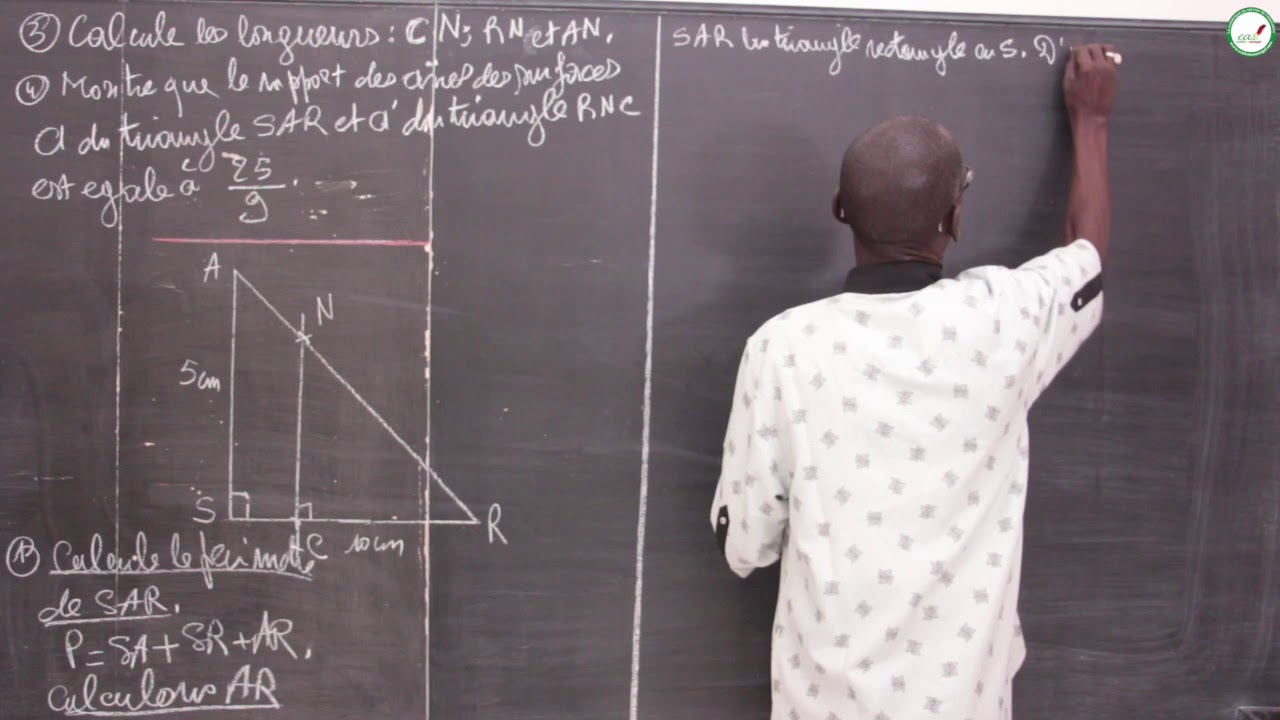 ③ Calcule les longueurs : CN; RN et AN.
④ Montre que le rapport des aires des surfaces
a du triangle SAR et a' du triangle RNC
est egale à 25/9.
A
N
5cm
S
C
10cm
R
① Calcule le périmètre
de SAR.
P = SA + SR + AR.
Calculons AR
SAR un triangle rectangle en S. D'
eas